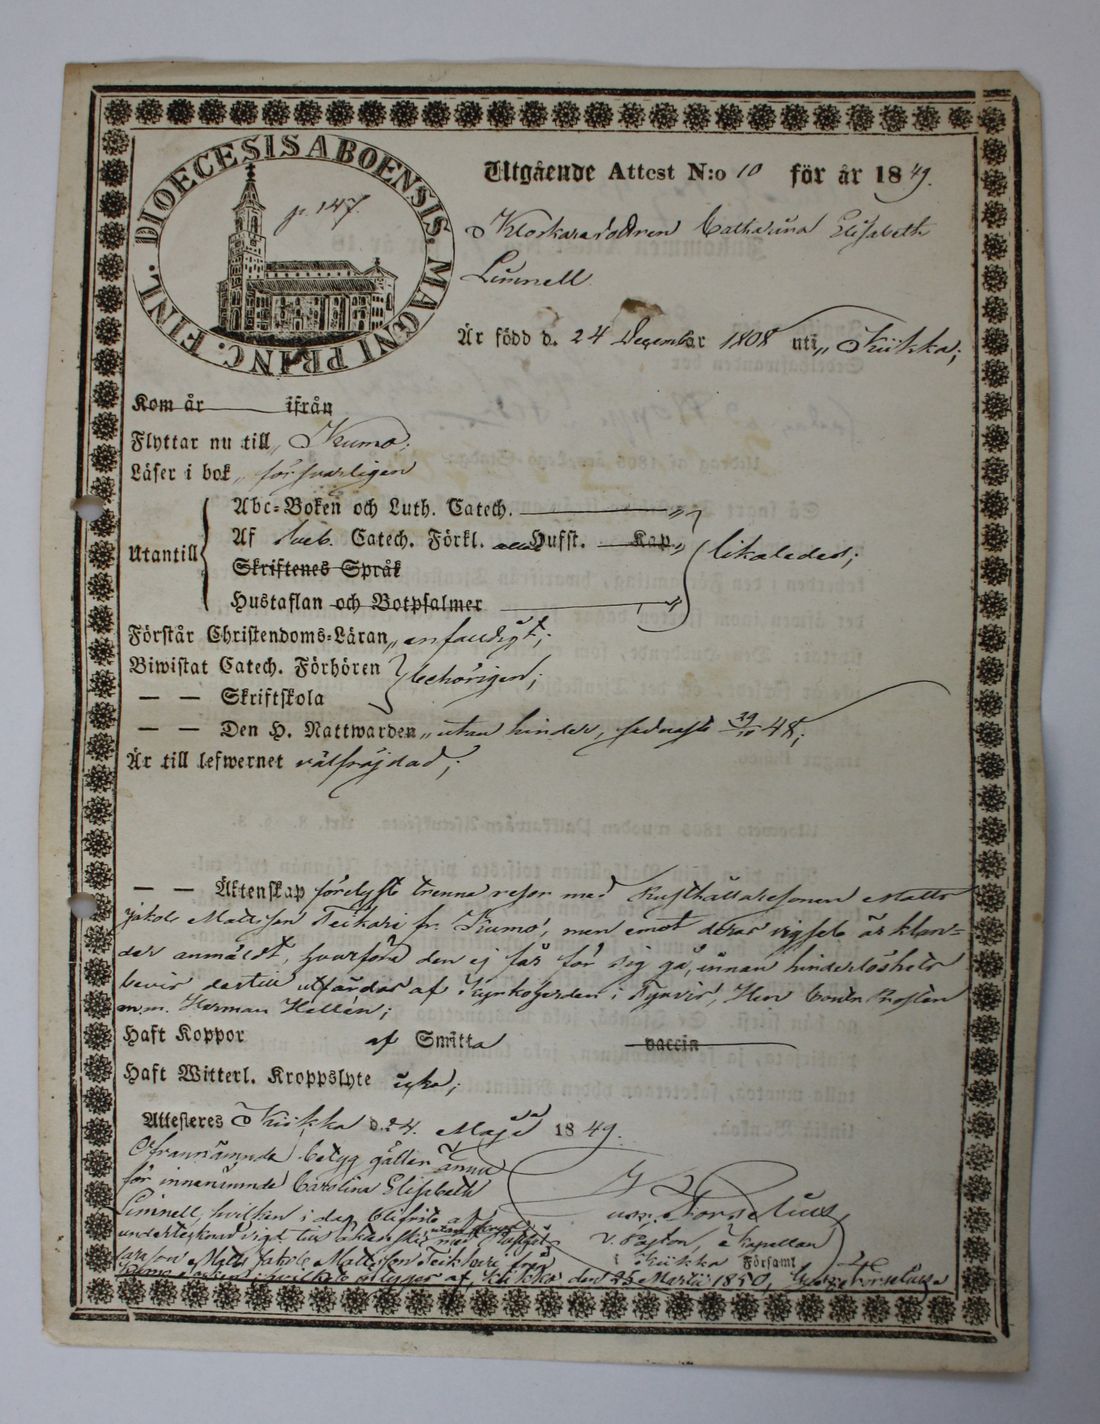 DIOECESIS ABOENSIS. MAGNI PRINC. FINL.
p. 147.
Utgående Attest N:o 10 för år 1849.
Klockaredottren Catharina Elisabeth
Limnell
Är född d. 24 December 1808 uti Kiikka;
Kom år ifrån
Flyttar nu till Kumo;
Läser i bok försvarligen
Utantill
Abc-Boken och Luth. Catech.
Af Sveb. Catech. Förkl. Husst. Kap.
likaledes;
Skriftenes Språk
Hustaflan och Botpsalmer
Förstår Christendoms-Läran enfaldigt;
Biwistat Catech. Förhören
behörigen;
— — Skriftskola
— — Den H. Nattwarden utan hinder, sednaste 48;
Är till lefwernet välfräjdad;
— — Äktenskap förelyst trenne resor med Rusthållaresonen Matts
Jakob Mattsson Teikari fr. Kumo, men emot deras vigsel är klan-
der anmäldt, hvarföre den ej får för sig gå, innan hinderlöshets
bevis dertill utfärdas af Kyrkoherden i Tyrvis, Herr Contr. Prosten
m.m. Herman Hellén;
Haft Koppor af Smitta vaccin
Haft Witterl. Kroppslyte icke;
Attesteras Kiikka d. 24 Maji 1849.
Ofvannämnde betyg gäller ännu
för innenämnde Carolina Elisabeth
Limnell, hvilken i dag blifvit af
undertecknad vigd till äkta med
Matts Jakob Mattsson Teikari från
Kumo af Kiikka den Martii 1850,
Forselius
V. Pastor, Kapellan
i Kiikka Församl.